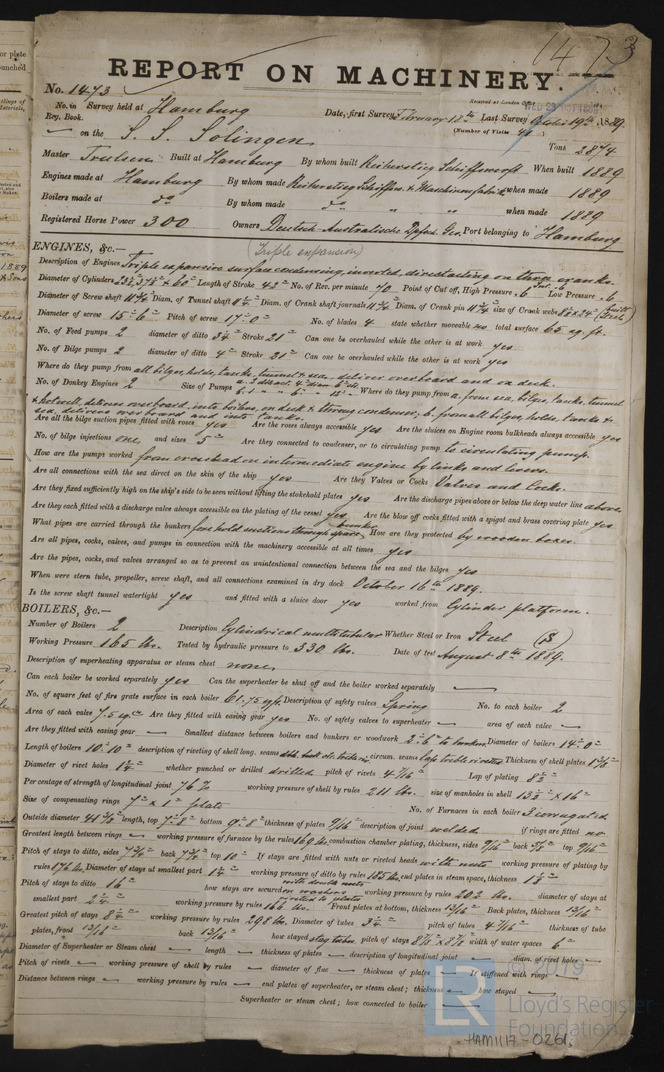 1473
REPORT ON MACHINERY.
No. 1473
Received at London Office
No. in Survey held at Hamburg Date, first Survey February 18th Last Survey October 19th 1889
Reg. Book. (Number of Visits 40)
on the S. S. Solingen Tons 2874
Master Built at Hamburg By whom built Reiherstieg Schiffswerft When built 1889
Engines made at Hamburg By whom made Reiherstieg Schiffsw. & Maschinenfabrik when made 1889
Boilers made at do By whom made do " " when made 1889
Registered Horse Power 300 Owners Deutsch-Australische Dpfsch. Ges. Port belonging to Hamburg
ENGINES, &c.— (Triple expansion)
Description of Engines Triple expansive surface condensing, inverted, direct acting on three cranks.
Diameter of Cylinders Length of Stroke 42" No. of Rev. per minute 70 Point of Cut off, High Pressure .6 Low Pressure .6
Diameter of Screw shaft Diam. of Tunnel shaft Diam. of Crank shaft journals 11 3/4 Diam. of Crank pin 11 3/4 size of Crank webs
Diameter of screw 15'-6" Pitch of screw 17'-0" No. of blades 4 state whether moveable no total surface 65 sq. ft.
No. of Feed pumps 2 diameter of ditto Stroke 21" Can one be overhauled while the other is at work yes
No. of Bilge pumps 2 diameter of ditto 4" Stroke 21" Can one be overhauled while the other is at work yes
Where do they pump from all bilges, holds, tanks, tunnel & sea, deliver overboard and on deck.
No. of Donkey Engines 2 Size of Pumps Where do they pump from a. from sea, bilges, tanks, tunnel
& hotwell, delivers overboard, into boilers, on deck & through condenser; b. from all bilges, holds, tanks &
sea, delivers overboard and into tanks.
Are all the bilge suction pipes fitted with roses yes Are the roses always accessible yes Are the sluices on Engine room bulkheads always accessible yes
No. of bilge injections one, and sizes 5" Are they connected to condenser, or to circulating pump to circulating pump.
How are the pumps worked from crosshead on intermediate engine by links and levers.
Are all connections with the sea direct on the skin of the ship yes Are they Valves or Cocks Valves and Cocks.
Are they fixed sufficiently high on the ship's side to be seen without lifting the stokehold plates yes Are the discharge pipes above or below the deep water line above.
Are they each fitted with a discharge valve always accessible on the plating of the vessel yes Are the blow off cocks fitted with a spigot and brass covering plate yes
What pipes are carried through the bunkers fore hold suctions through bunker space How are they protected by wooden boxes.
Are all pipes, cocks, valves, and pumps in connection with the machinery accessible at all times yes
Are the pipes, cocks, and valves arranged so as to prevent an unintentional connection between the sea and the bilges yes
When were stern tube, propeller, screw shaft, and all connections examined in dry dock October 16th 1889.
Is the screw shaft tunnel watertight yes and fitted with a sluice door yes worked from Cylinder platform.
BOILERS, &c.—
Number of Boilers 2 Description Cylindrical multitubular Whether Steel or Iron Steel (S)
Working Pressure 165 lbs. Tested by hydraulic pressure to 330 lbs. Date of test August 8th 1889.
Description of superheating apparatus or steam chest none.
Can each boiler be worked separately yes Can the superheater be shut off and the boiler worked separately —
No. of square feet of fire grate surface in each boiler 61.75 sq. ft. Description of safety valves Spring No. to each boiler 2
Area of each valve Are they fitted with easing gear yes No. of safety valves to superheater — area of each valve —
Are they fitted with easing gear — Smallest distance between boilers and bunkers or woodwork 2'-6" to bunkers Diameter of boilers 14'-0"
Length of boilers 10'-10" description of riveting of shell long. seams circum. seams lap treble riveted Thickness of shell plates
Diameter of rivet holes whether punched or drilled drilled pitch of rivets Lap of plating
Per centage of strength of longitudinal joint 76 % working pressure of shell by rules 211 lbs. size of manholes in shell
Size of compensating rings 7" x 1" plate No. of Furnaces in each boiler 3 corrugated
Outside diameter length, top bottom thickness of plates 9/16" description of joint welded if rings are fitted no
Greatest length between rings — working pressure of furnace by the rules 169 lbs. combustion chamber plating, thickness, sides 9/16" back top 9/16"
Pitch of stays to ditto, sides back top 10" If stays are fitted with nuts or riveted heads with nuts working pressure of plating by
rules 176 lbs. Diameter of stays at smallest part working pressure of ditto by rules end plates in steam space, thickness
Pitch of stays to ditto 16" how stays are secured working pressure by rules 202 lbs. diameter of stays at
smallest part working pressure by rules Front plates at bottom, thickness 13/16" Back plates, thickness 13/16"
Greatest pitch of stays working pressure by rules 298 lbs. Diameter of tubes pitch of tubes thickness of tube
plates, front 13/16" back 13/16" how stayed stay tubes pitch of stays width of water spaces 6"
Diameter of Superheater or Steam chest — length — thickness of plates — description of longitudinal joint — diam. of rivet holes —
Pitch of rivets — working pressure of shell by rules — diameter of flue — thickness of plates — If stiffened with rings —
Distance between rings — working pressure by rules — end plates of superheater, or steam chest; thickness — how stayed —
Superheater or steam chest; how connected to boiler —
©2019
LR
Lloyd's Register
Foundation
HAM1117-0261